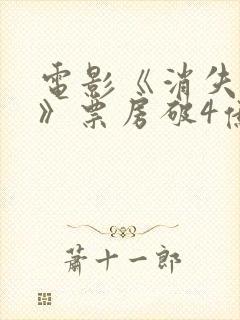 電影《消失
》票房破4億
蕭十一郎